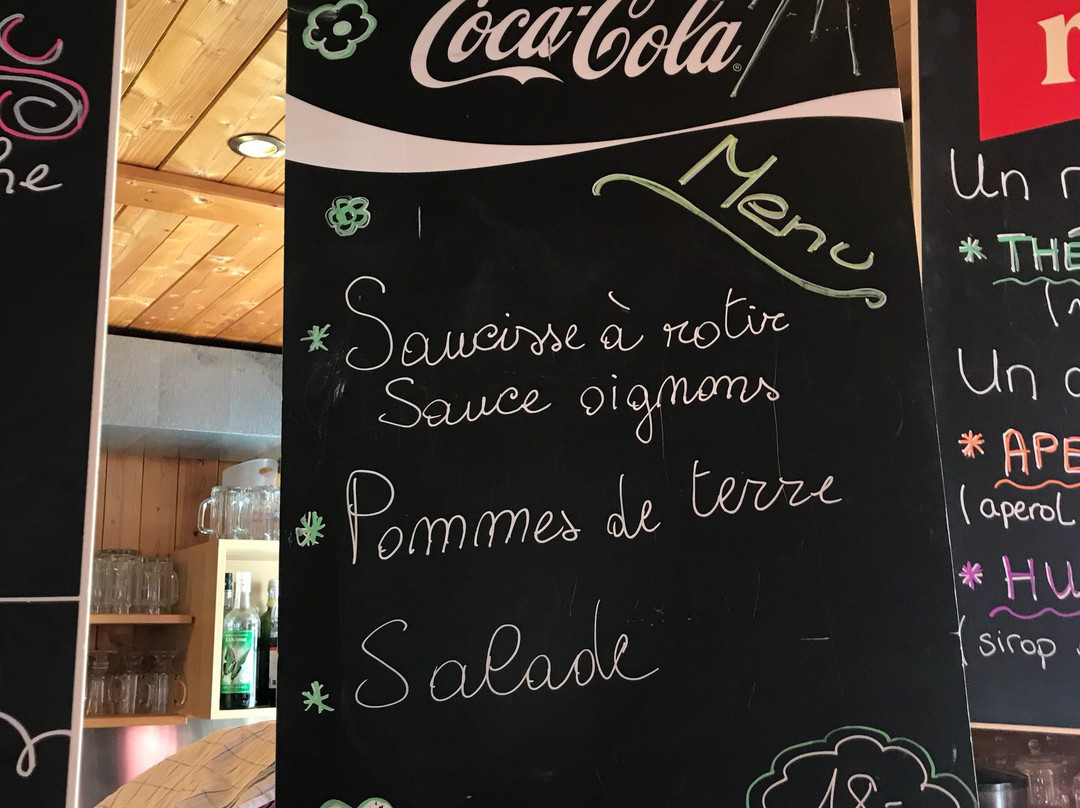 Coca-Cola
Menu
Saucisse à rotir
Sauce oignons
Pommes de terre
Salade
18.-
he
Un
* THÉ
Un
* APE
(aperol
* HU
(sirop